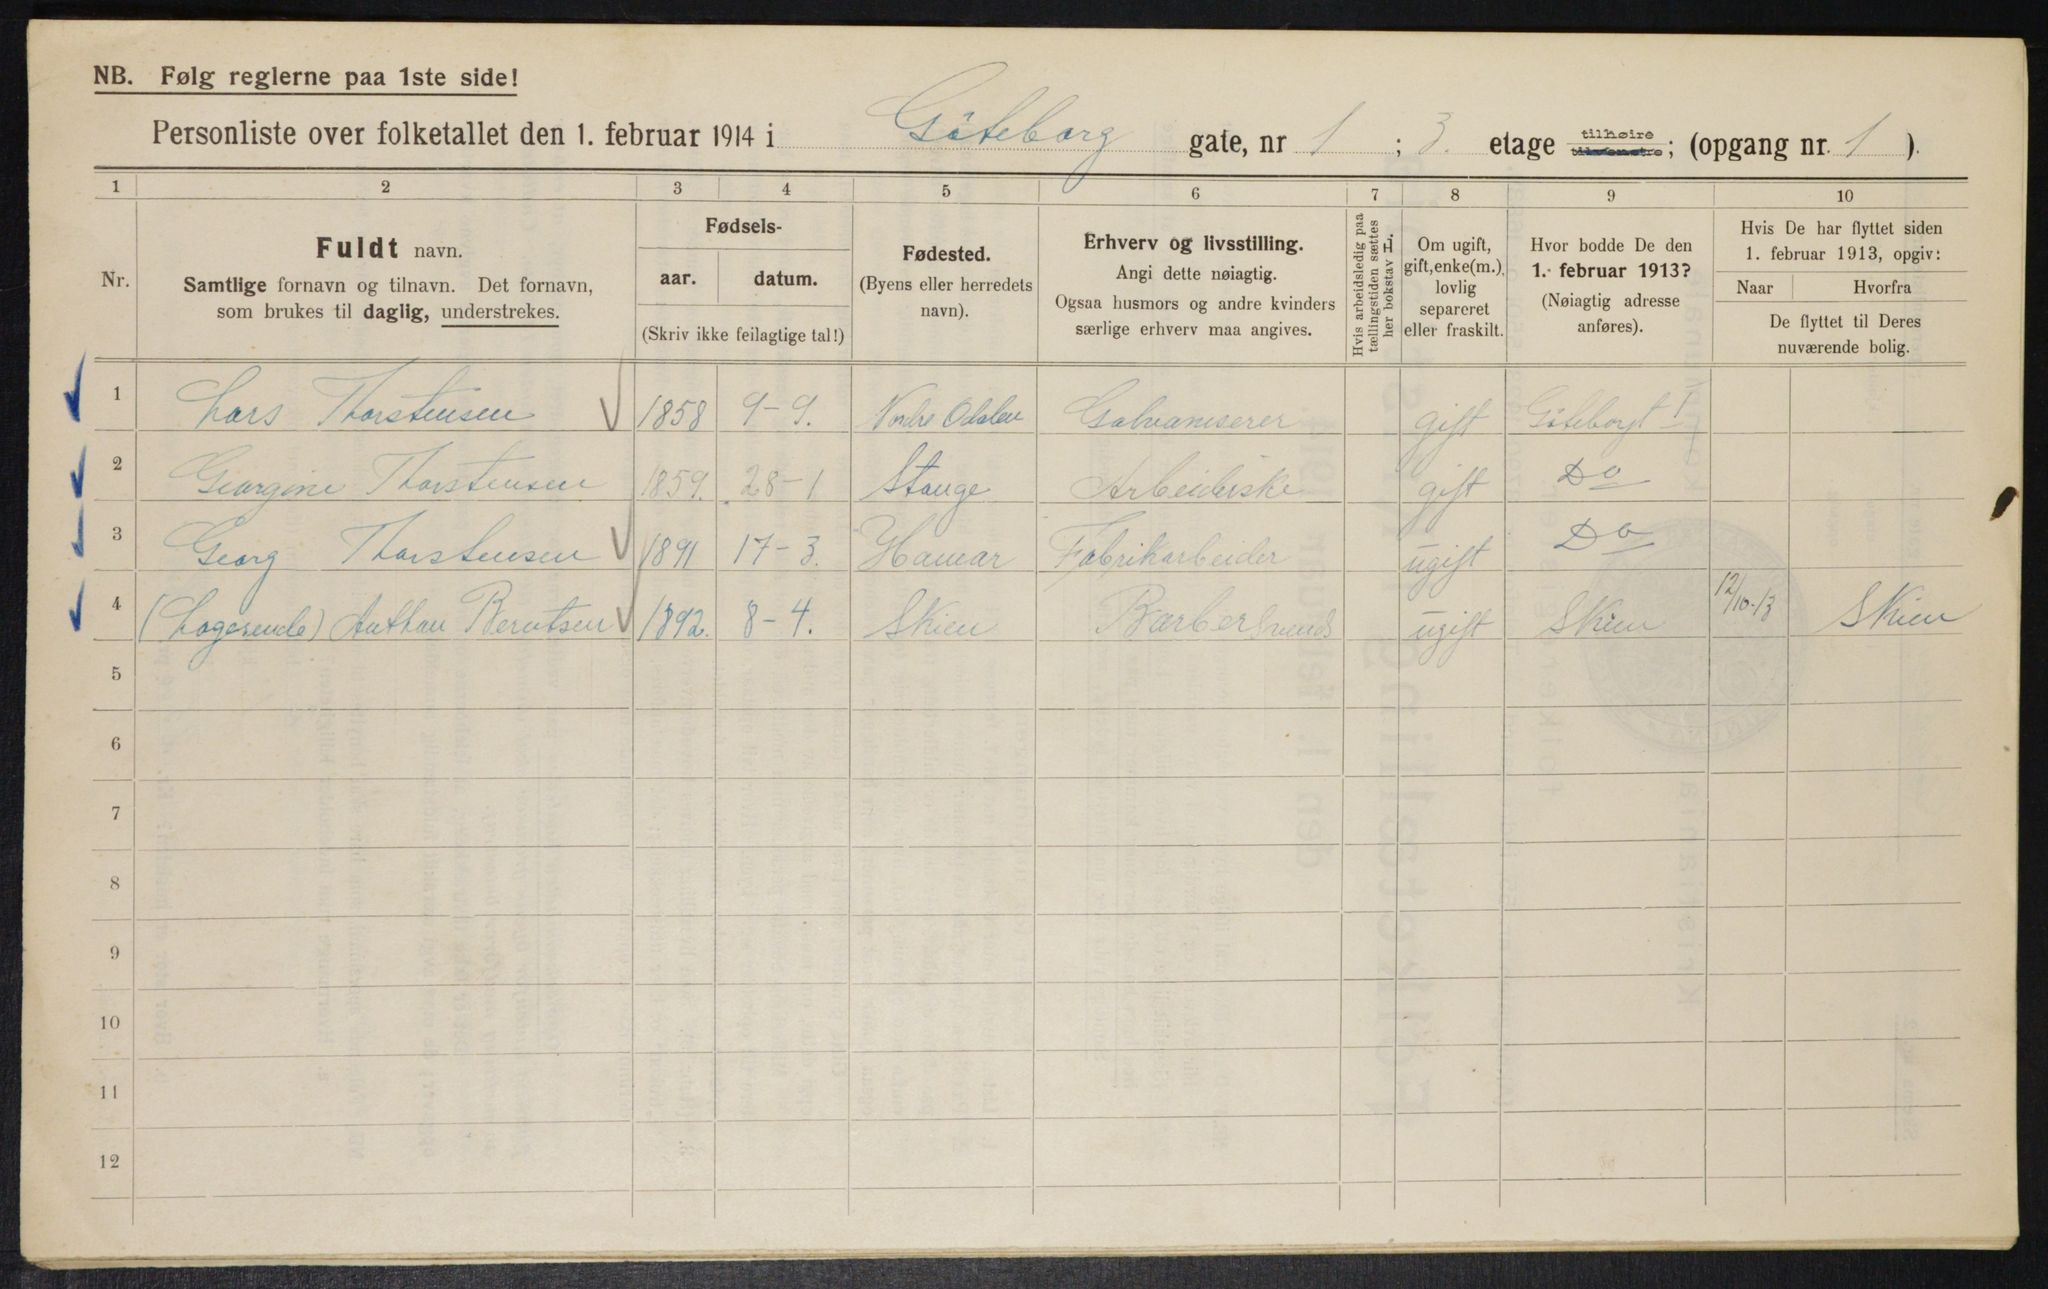 NB. Følg reglerne paa 1ste side!
Personliste over folketallet den 1. februar 1914 i Göteborg gate, nr 1 ; 3. etage tilhøire tilvenstre; (opgang nr. 1 ).
1 2 3 4 5 6 7 8 9 10
Nr.
Fuldt navn.
Samtlige fornavn og tilnavn. Det fornavn,
som brukes til daglig, understrekes.
Fødsels-
aar. datum.
(Skriv ikke feilagtige tal!)
Fødested.
(Byens eller herredets
navn).
Erhverv og livsstilling.
Angi dette nøiagtig.
Ogsaa husmors og andre kvinders
særlige erhverv maa angives.
Hvis arbeidsledig paa
tællingstiden sættes
her bokstav L.
Om ugift,
gift, enke(m.),
lovlig
separeret
eller fraskilt.
Hvor bodde De den
1. februar 1913?
(Nøiagtig adresse
anføres).
Hvis De har flyttet siden
1. februar 1913, opgiv:
Naar Hvorfra
De flyttet til Deres
nuværende bolig.
1 Lars Thorstensen 1858 9-9. Nordre Odalen Galvaniserer gift Göteborgt 1
2 Georgine Thorstensen 1859. 28-1 Stange Arbeiderske gift Do
3 Georg Thorstensen 1891 17-3. Hamar Fabrikarbeider ugift Do
4 (Logerende) Anthon Berntsen 1892. 8-4. Skien Barbersvend ugift Skien 12/10-13 Skien
5
6
7
8
9
10
11
12